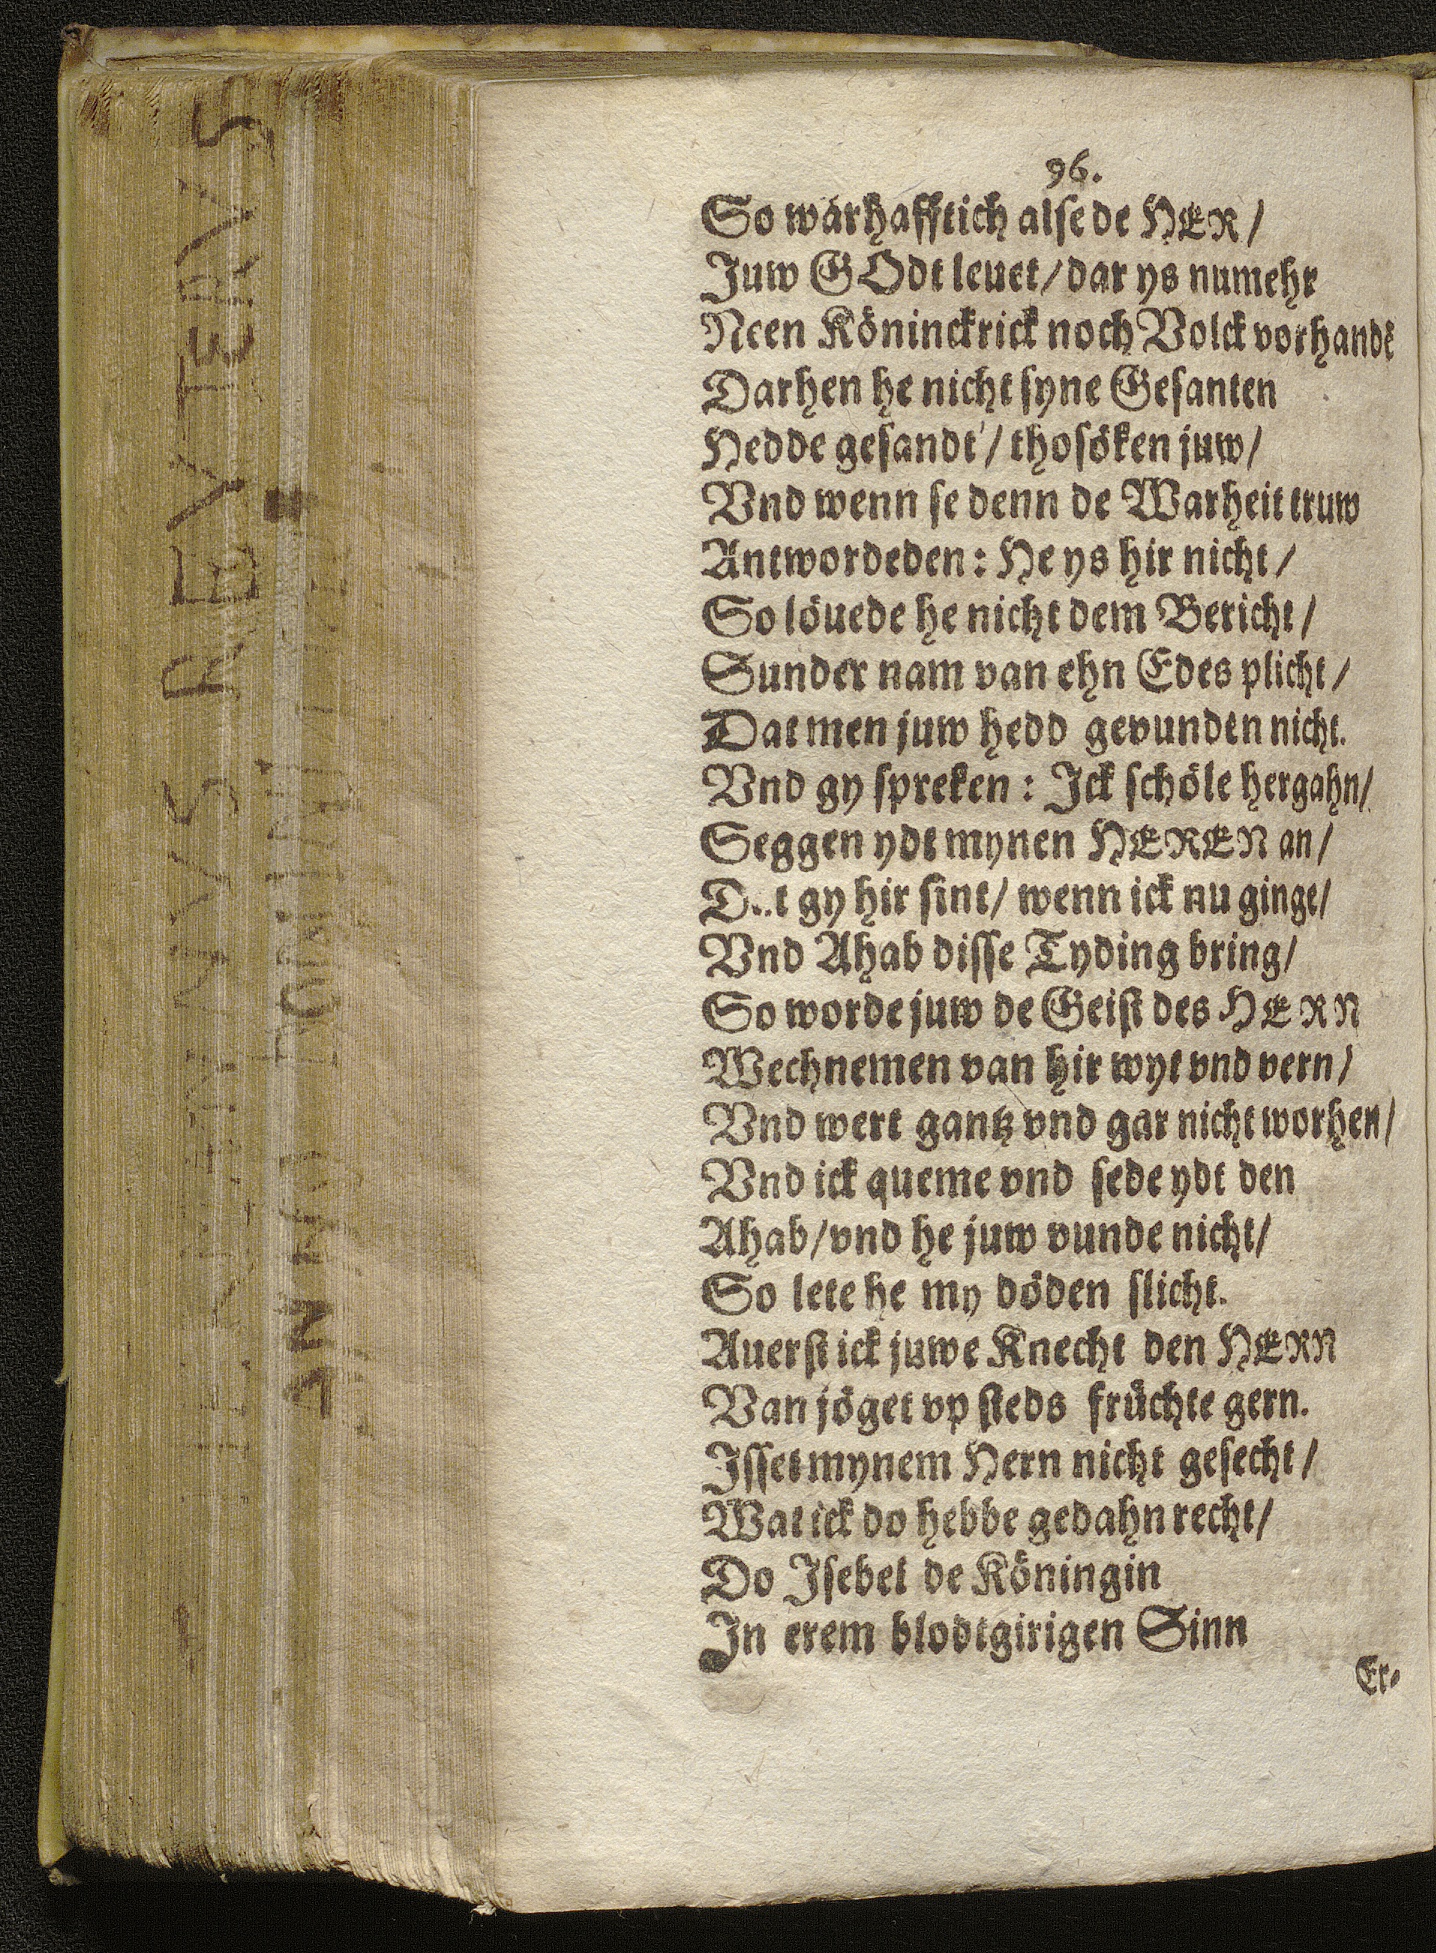 96.
So warhafftich alse de HER /
Juw GOdt leuet / dar ys numehr
Neen Köninckrick noch Volck vorhandē
Darhen he nicht syne Gesanten
Hedde gesandt / thosöken juw /
Vnd wenn se denn de Warheit truw
Antwordeden : He ys hir nicht /
So löuede he nicht dem Bericht /
Sunder nam van ehn Edes plicht /
Dat men juw hedd gevunden nicht.
Vnd gy spreken : Ick schöle hergahn /
Seggen ydt mynen HEREN an /
D..t gy hir sint / wenn ick nu ginge /
Vnd Ahab disse Tyding bring /
So worde juw de Geist des HERN
Wechnemen van hir wyt vnd vern /
Vnd wert gantz vnd gar nicht worhen /
Vnd ick queme vnd sede ydt den
Ahab / vnd he juw vunde nicht /
So lete he my döden slicht.
Auerst ick juwe Knecht den HERN
Van jöget vp steds früchte gern.
Isset mynem Hern nicht gesecht /
Wat ick do hebbe gedahn recht /
Do Isebel de Köningin
In erem blodtgirigen Sinn
Er-
REVTERVS